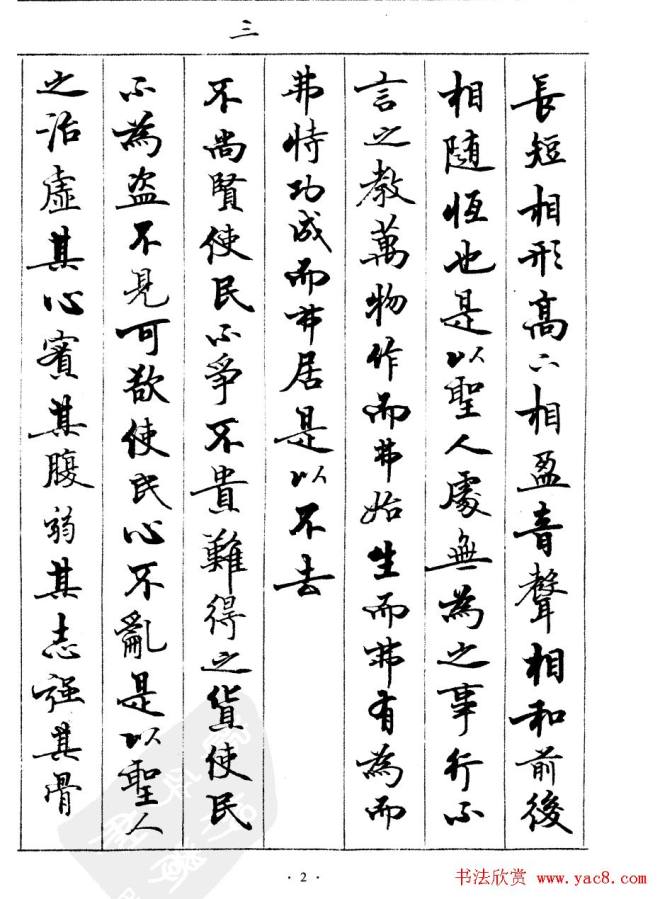 三
長短相形高下相盈音聲相和前後
相随恆也是以聖人處無為之事行不
言之教萬物作而弗始生而弗有為而
弗恃功成而弗居是以不去
不尚賢使民不爭不貴難得之貨使民
不為盜不見可欲使民心不亂是以聖人
之治虛其心實其腹弱其志强其骨
· 2 ·
书法欣赏 www.yac8.com